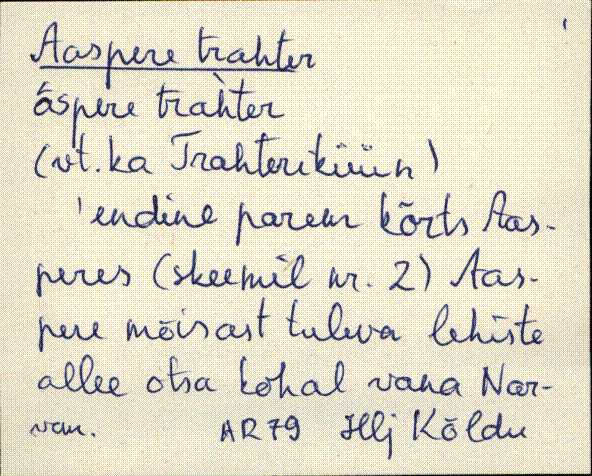 Aaspere trahter
āspere trah̀ter
(vt. ka Trahteriküün)
'endine parem kõrts Aas-
peres (skeemil nr. 2) Aas-
pere mõisast tuleva lehiste
allee otsa kohal vana Nar-
van. AR79 Hlj Kõldu